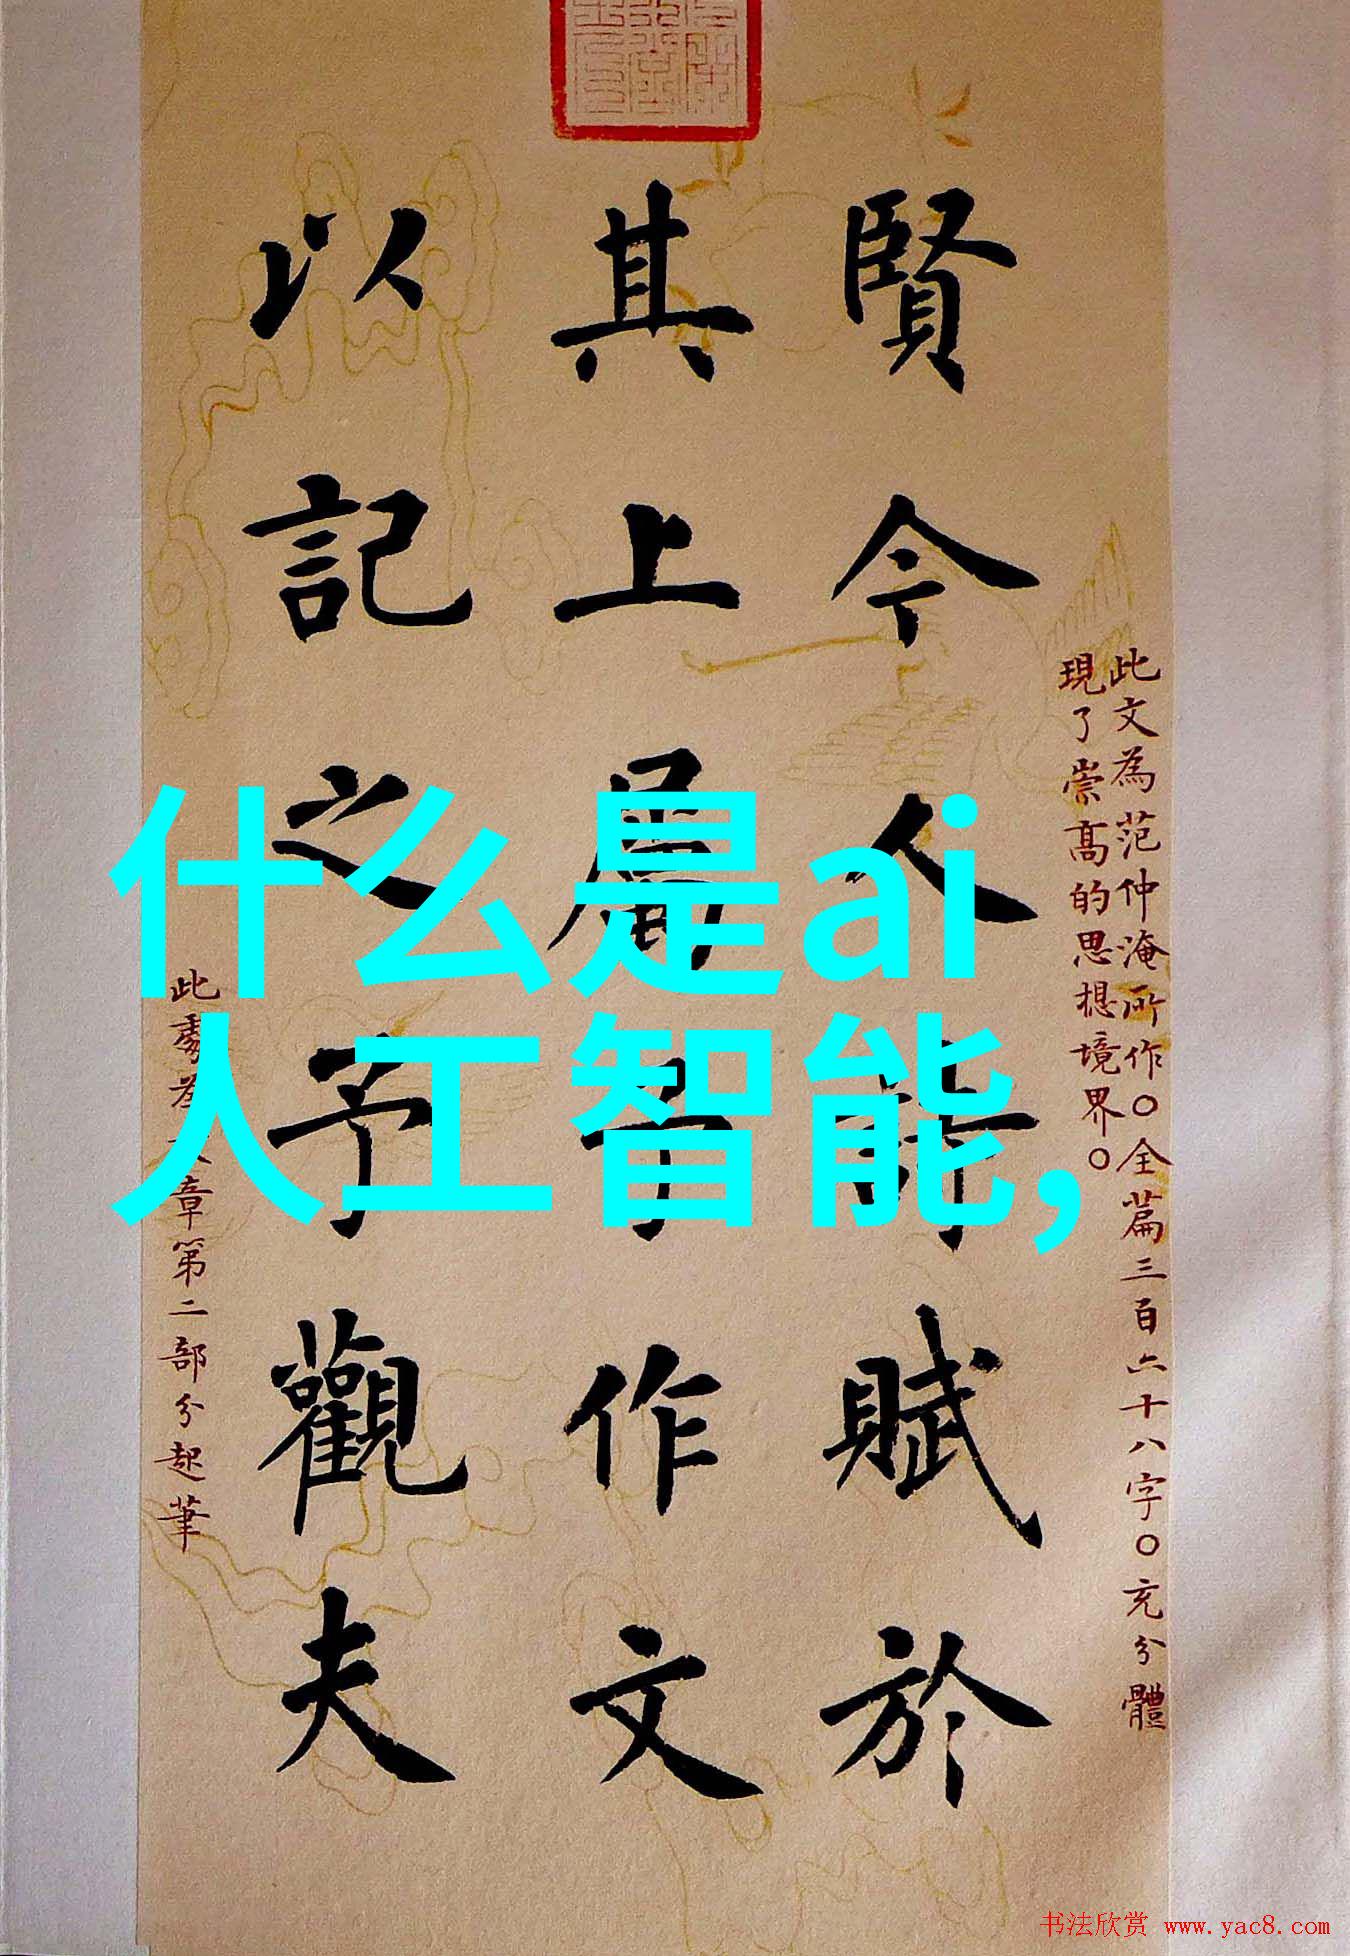 此文為范仲淹所作〇全篇三百六十八字〇充分體
現了崇高的思想境界〇
賢今人詩賦於
其上屬予作文
以記之予觀夫
此處為文章第二部分起筆
什么是ai
人工智能,
书法欣赏 www.yac8.com